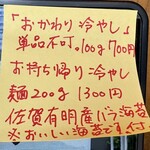 「おかわり冷やし」
単品不可。100g 700円
お持ち帰り冷やし
麺200g 1300円
佐賀有明産バラ海苔
※おいしい海苔です付